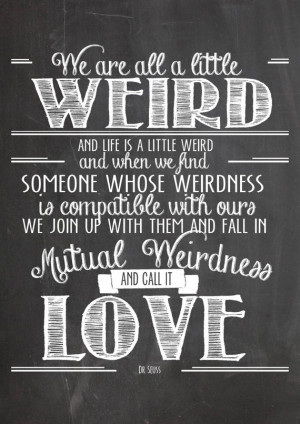 We are all a little
WEIRD
AND LIFE IS A LITTLE WEIRD
and when we find
SOMEONE WHOSE WEIRDNESS
is compatible with ours
WE JOIN UP WITH THEM AND FALL IN
Mutual Weirdness
AND CALL IT
LOVE
DR SEUSS